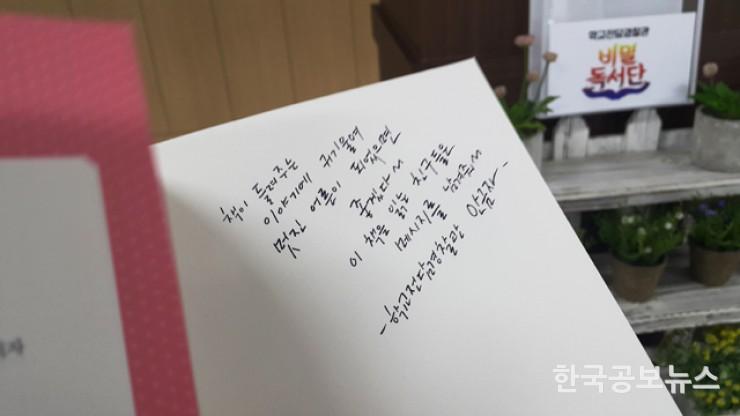 책이 들려주는
이야기에 귀기울여
멋진 어른이 되었으면
좋겠다서
이 책을 읽는 친구들은
메시지를 남겨줘서
-학교전담경찰관 안금자-
학교전담경찰관
비밀
독서단
한국공보뉴스